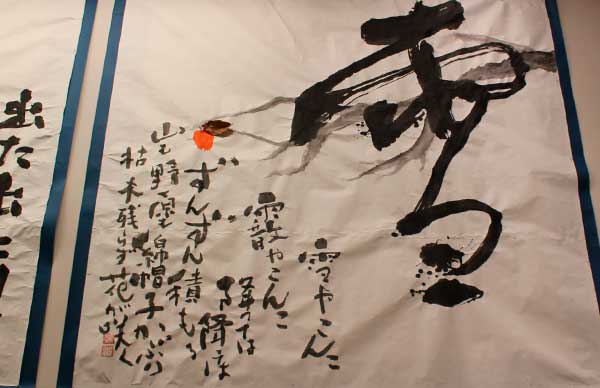 雪
雪やこんこ
霰やこんこ
降っては
ずんずん積もる
山も野原も綿帽子かぶり
枯木残らず花が咲く
出た出た